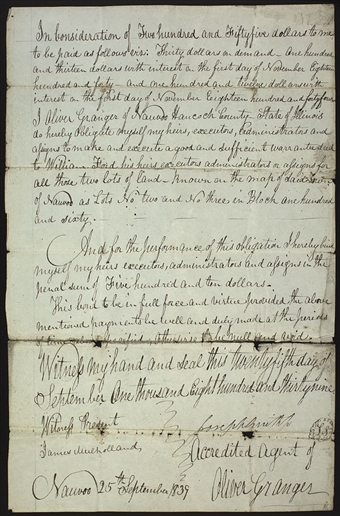 In consideration of Two hundred and Fiftyfive dollars to me
to be paid as follows viz: Thirty dollars on demand - One hundred
and thirteen dollars with interest on the first day of November Eighteen
hundred and forty - and one hundred and twelve dollars with
interest on the first day of November Eighteen hundred and forty four
I Oliver Granger of Nauvoo Hancock County State of Illinois
do hereby obligate myself my heirs, executors, administrators and
assigns to make and execute a good and sufficient warrantee deed
to William Ford his heirs executors administrators or assigns for
all those two lots of land - known on the map of
of Nauvoo as Lots No. two and No three, in Block one hundred
and sixty.
And for the performance of this obligation I hereby bind
myself my heirs executors, administrators and assigns in the
penal sum of Five hundred and ten dollars.
This bond to be in full force and virtue provided the above
mentioned payments be well and duly made at the periods
of time specified, otherwise to be null and void.
Witness my hand and Seal this twentyfifth day of
September One thousand Eight hundred and thirty nine
Witness Present
Joseph Smith
James Mulholland,
Accredited Agent of
Nauvoo 25th September 1839
Oliver Granger